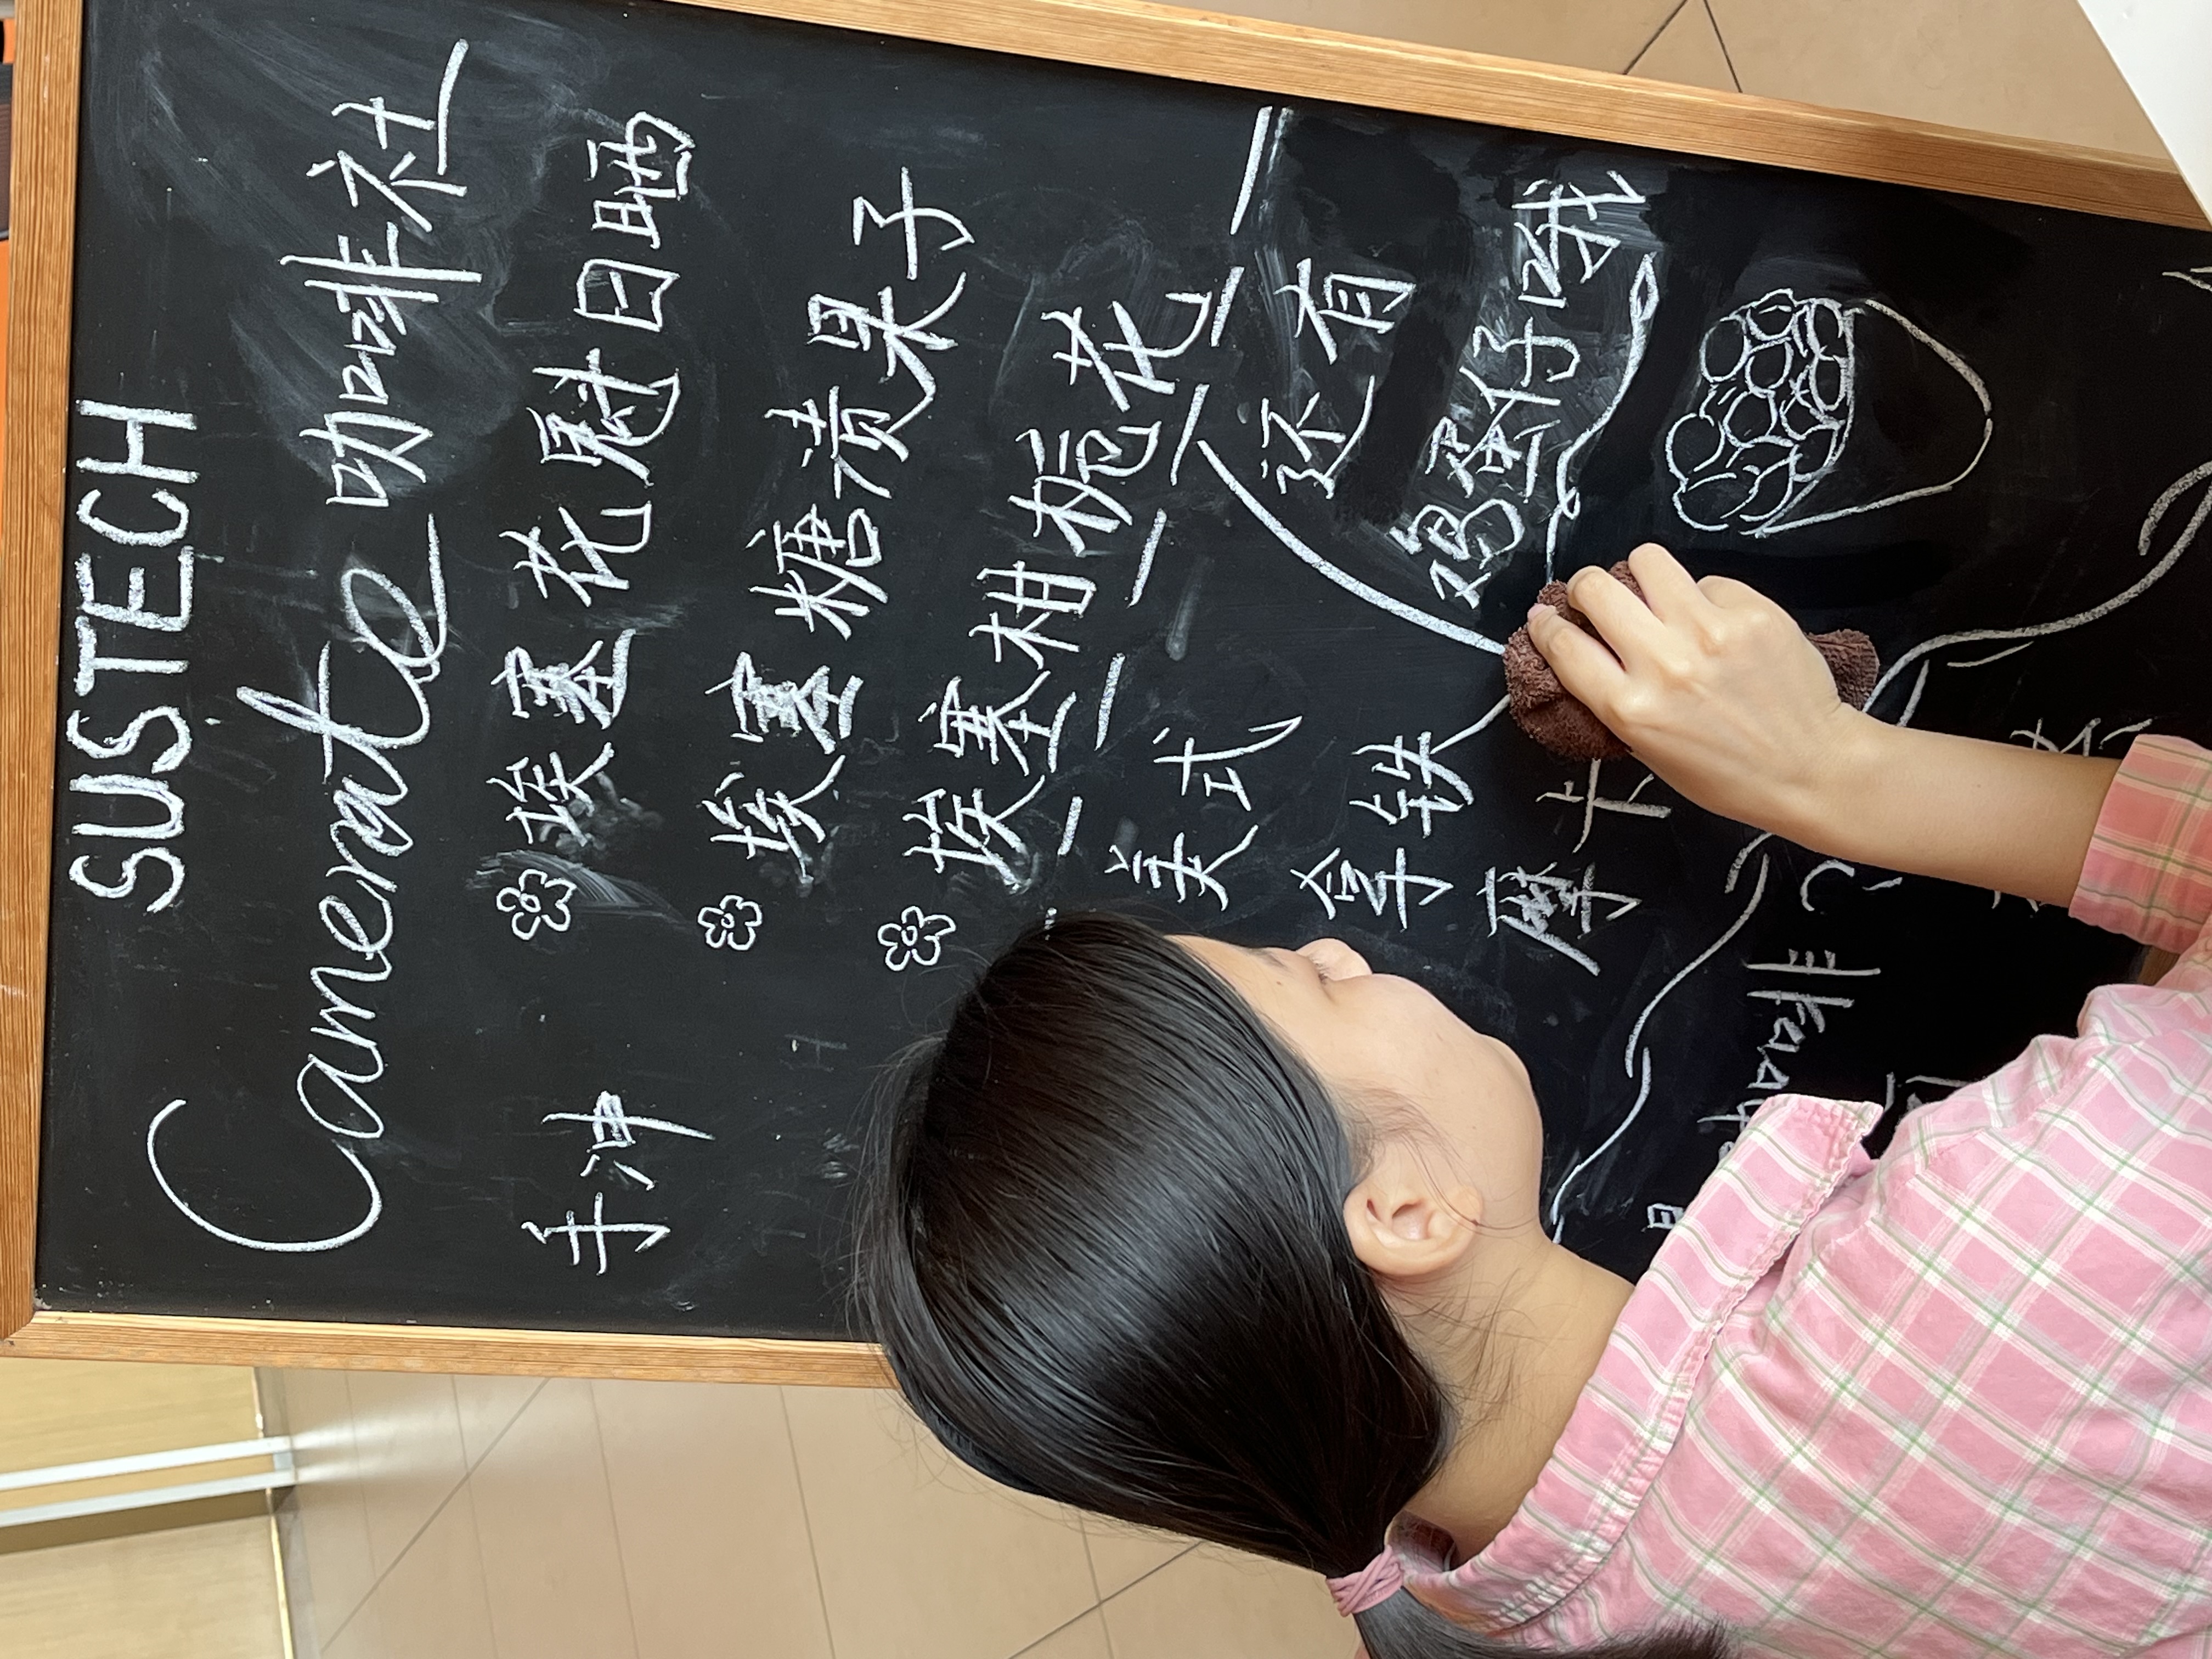 SUSTECH
Camerate 咖啡社
手冲
埃塞花魁日晒
埃塞糖渍果子
埃塞柑栀花
美式
拿铁
摩卡
还有
鸡蛋仔哦
咖啡